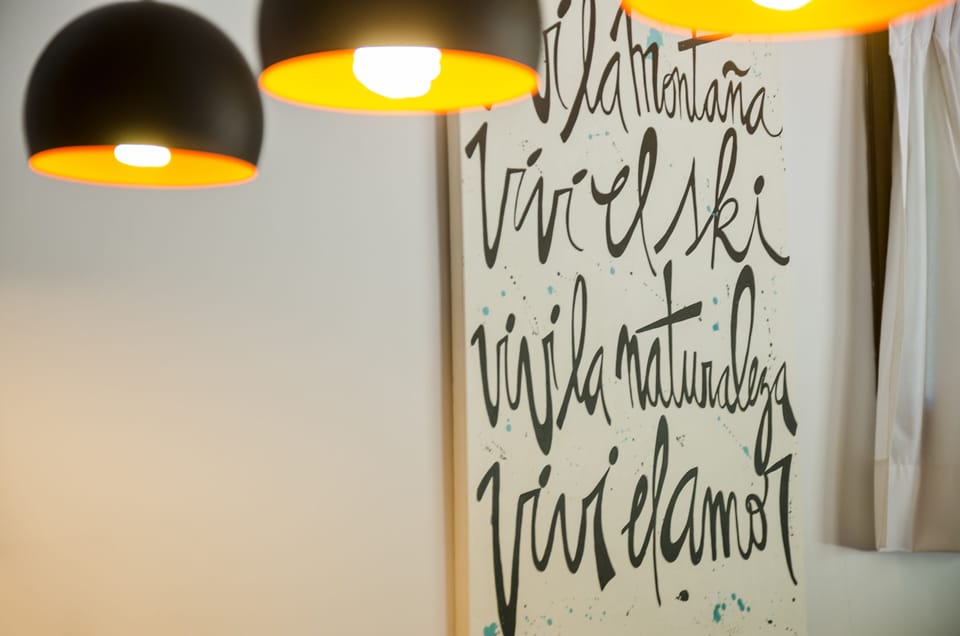 vivi la montaña
vivi el ski
vivi la naturaleza
vivi el amor